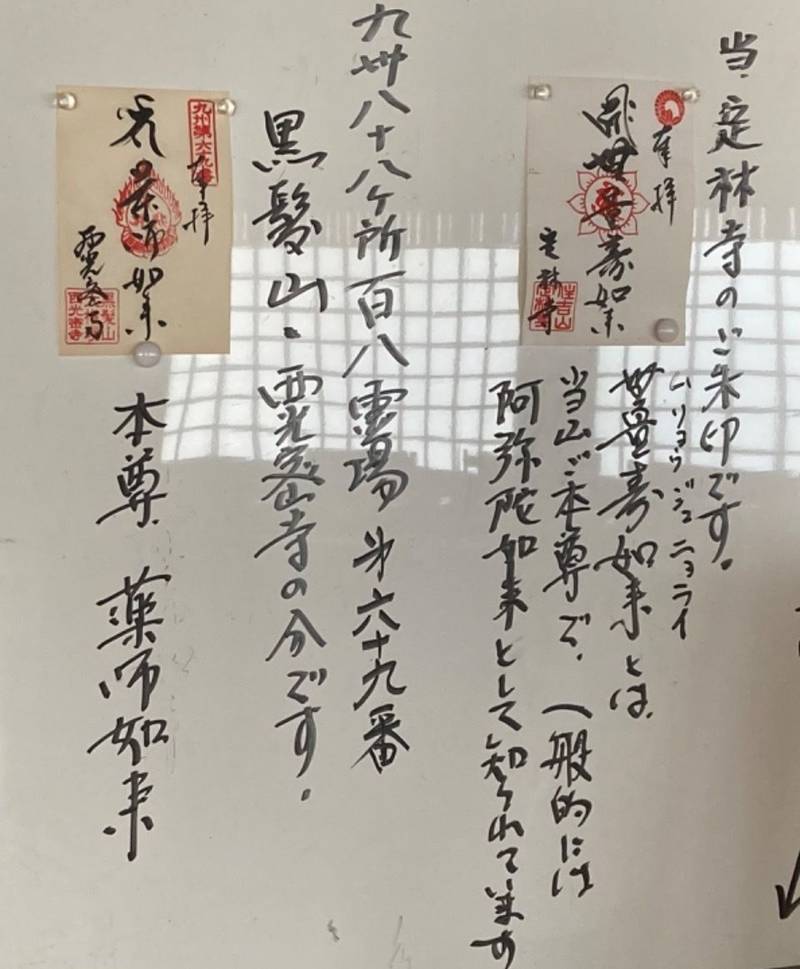 当、定林寺のご朱印です。
奉拝
無量寿如来
定林寺
ムリョウジュニョライ
無量寿如来とは
当山ご本尊で、一般的には
阿弥陀如来として知られています
九州八十八ヶ所百八霊場 第六十九番
黒髪山・西光密寺の分です。
九州第六十九番
奉拝
薬師如来
西光密寺
黒髪山
西光密寺
本尊 薬師如来